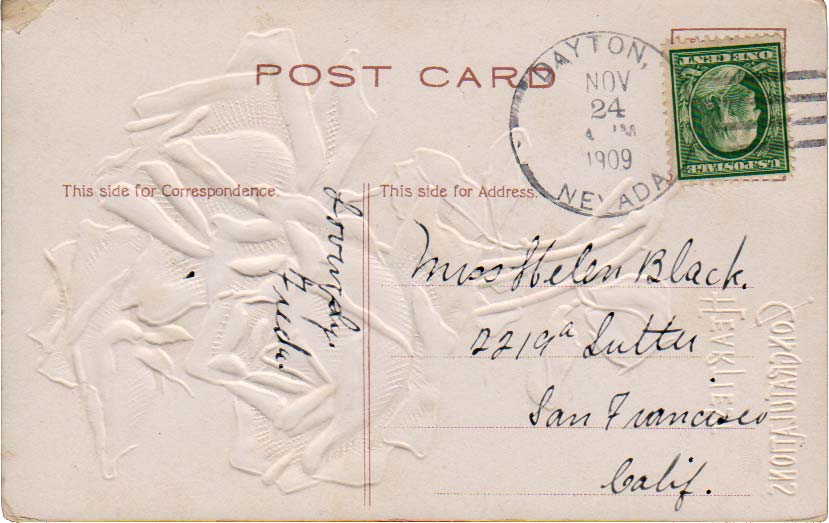 POST CARD
DAYTON,
NOV
24
1909
NEVADA
U.S. POSTAGE
ONE CENT
This side for Correspondence.
This side for Address.
Lovingly,
Freda.
Miss Helen Black.
2219a Sutter
San Francisco
Calif.
HEARTIEST
CONGRATULATIONS